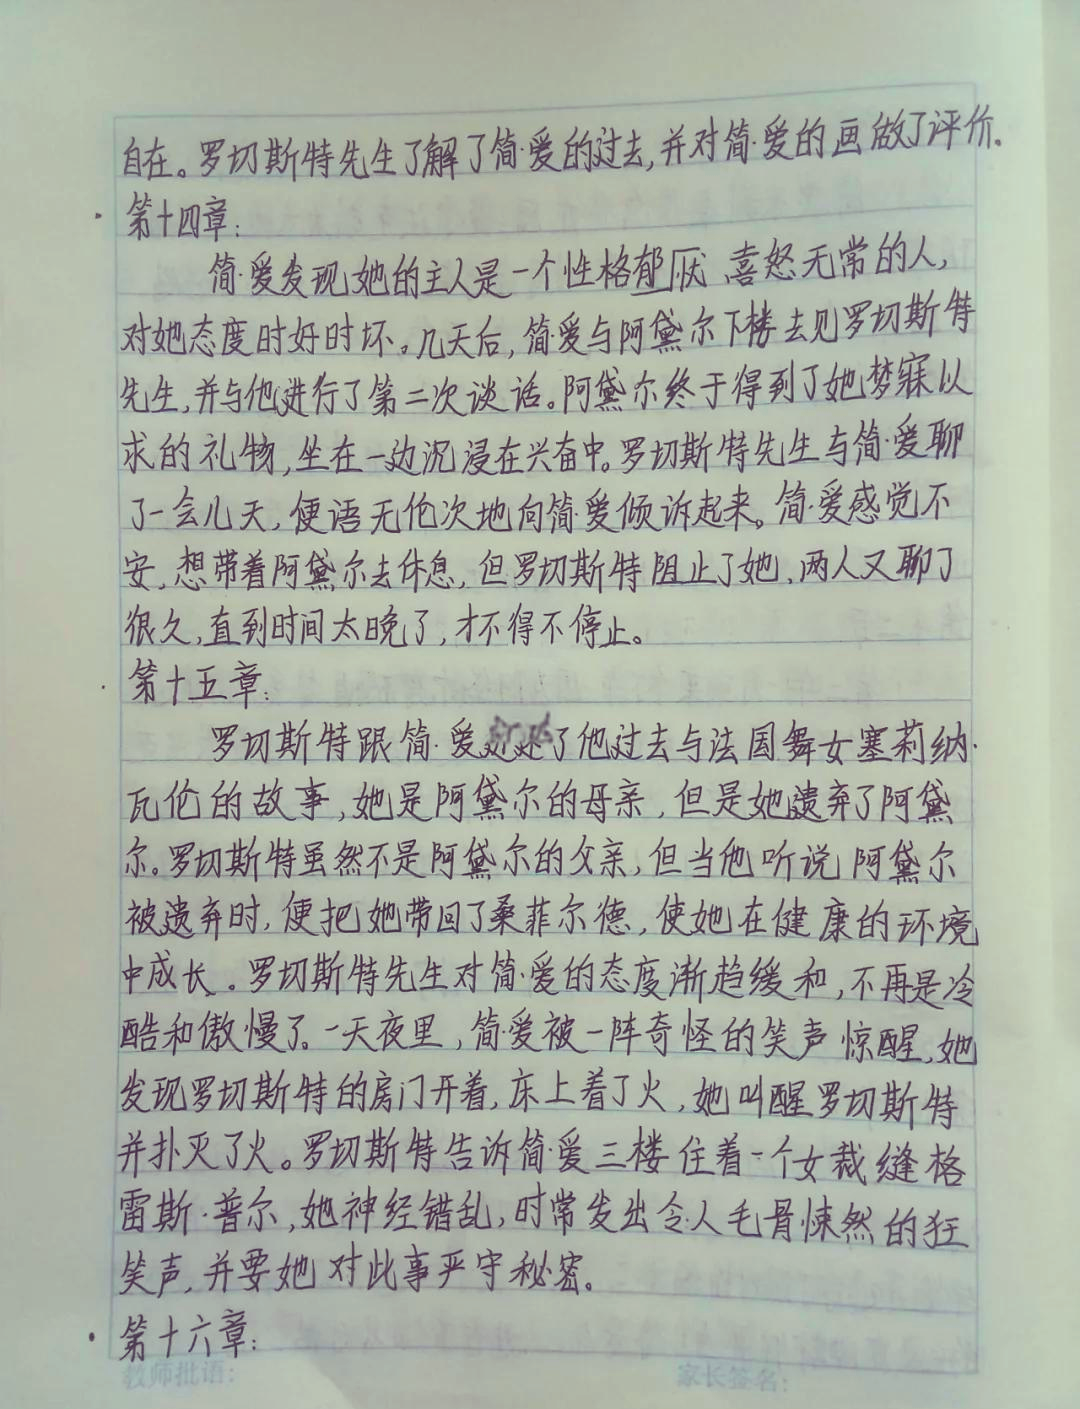 自在。罗切斯特先生了解了简·爱的过去,并对简·爱的画做了评价.
第十四章:
简·爱发现她的主人是一个性格郁厌、喜怒无常的人,
对她态度时好时坏。几天后,简爱与阿黛尔下楼去见罗切斯特
先生,并与他进行了第二次谈话。阿黛尔终于得到了她梦寐以
求的礼物,坐在一边沉浸在兴奋中。罗切斯特先生与简·爱聊
了一会儿天,便语无伦次地向简·爱倾诉起来。简·爱感觉不
安,想带着阿黛尔去休息,但罗切斯特阻止了她,两人又聊了
很久,直到时间太晚了,才不得不停止。
第十五章:
罗切斯特跟简·爱了他过去与法国舞女塞莉纳·
瓦伦的故事,她是阿黛尔的母亲,但是她遗弃了阿黛
尔。罗切斯特虽然不是阿黛尔的父亲,但当他听说阿黛尔
被遗弃时,便把她带回了桑菲尔德,使她在健康的环境
中成长。罗切斯特先生对简·爱的态度渐趋缓和,不再是冷
酷和傲慢了。一天夜里,简·爱被一阵奇怪的笑声惊醒,她
发现罗切斯特的房门开着,床上着了火,她叫醒罗切斯特
并扑灭了火。罗切斯特告诉简·爱三楼住着一个女裁缝格
雷斯·普尔,她神经错乱,时常发出令人毛骨悚然的狂
笑声,并要她对此事严守秘密。
第十六章:
教师批语:
家长签名: